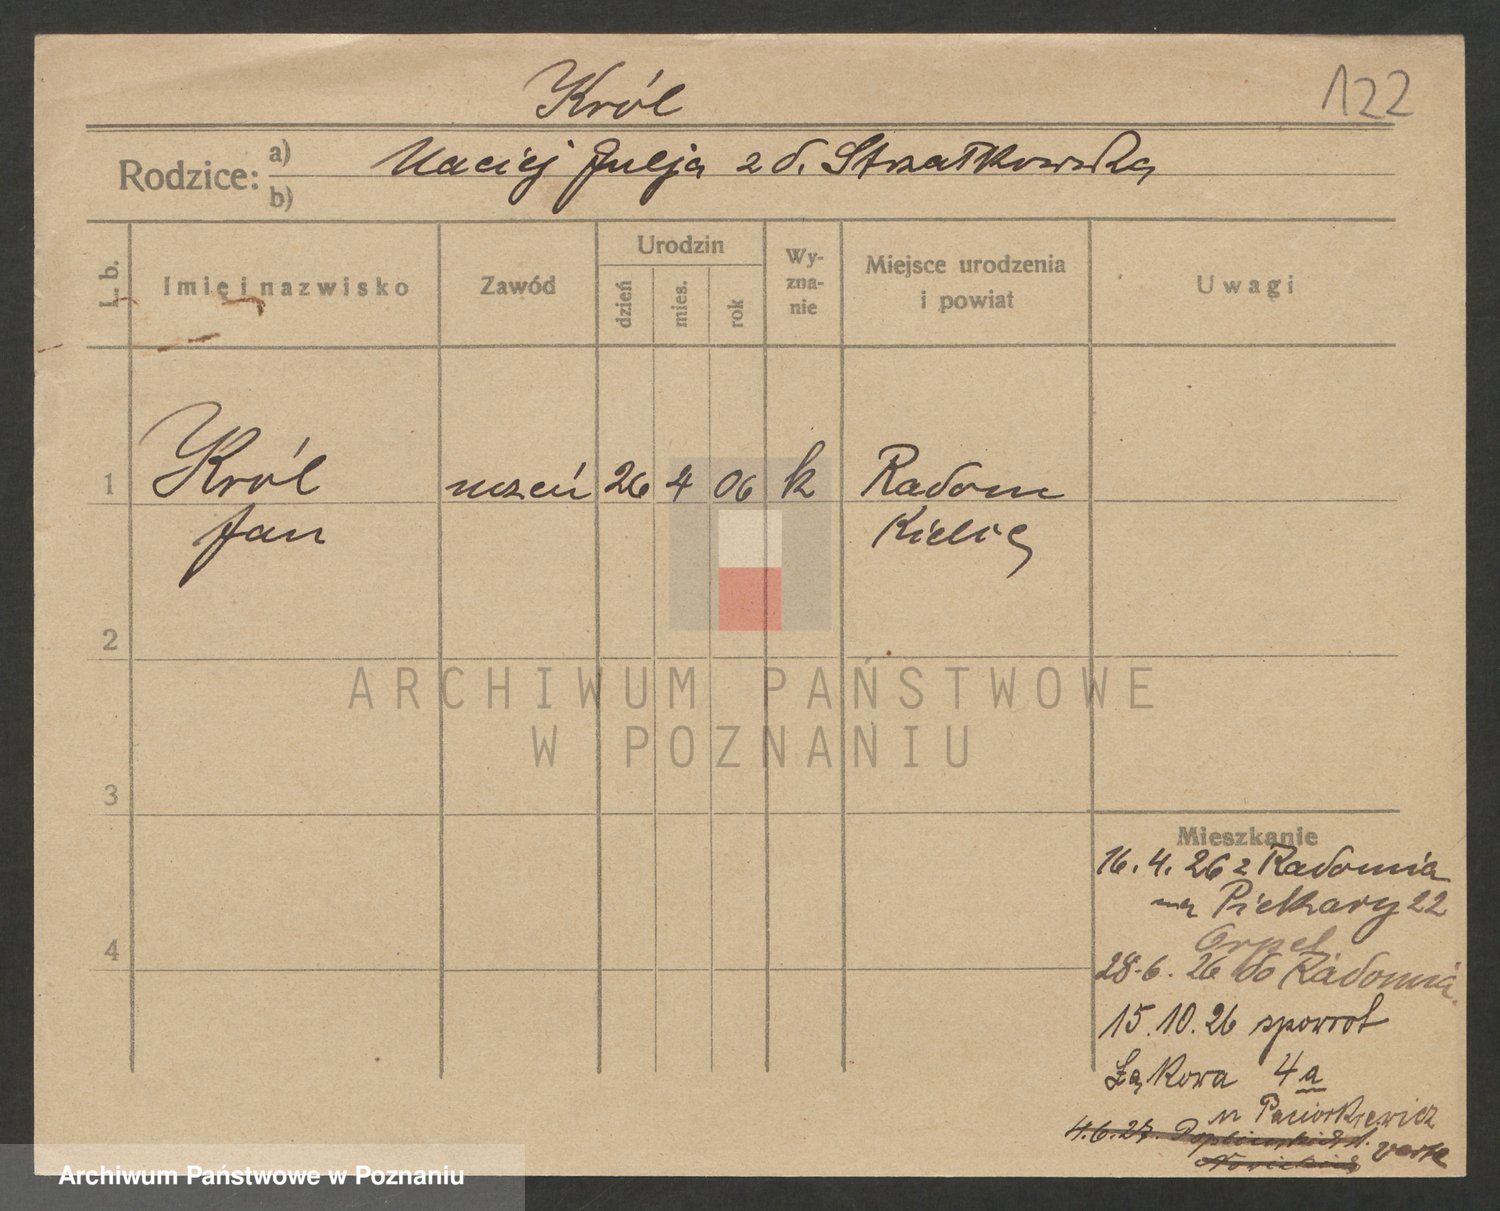 Król
122
Rodzice: a) b) Maciej Julja z d. Strzałkowska
L. b.
Imię i nazwisko
Zawód
Urodzin
dzień
mies.
rok
Wy-
zna-
nie
Miejsce urodzenia
i powiat
Uwagi
1 Król uczeń 26 4 06 k Radom
Jan Kielce
2
ARCHIWUM PAŃSTWOWE
W POZNANIU
3
Mieszkanie
16.4.26 z Radomia
na Piekary 22
4
28.6.26 do Radomia.
15.10.26 spowrot
Łąkowa 4a
u Paciorkiewicz
4.6.27. verte
Archiwum Państwowe w Poznaniu